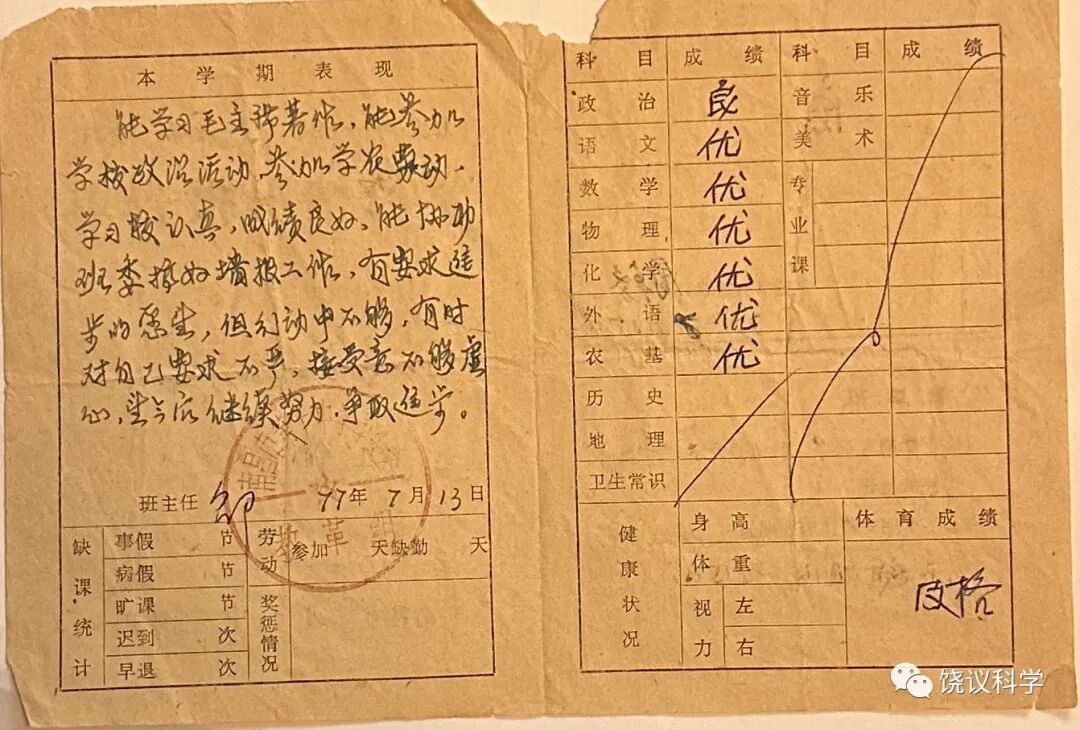 本学期表现
能学习毛主席著作，能参加
学校政治活动，参加学农劳动，
学习较认真，成绩良好，能协助
班委搞好墙报工作，有要求进
步的愿望，但行动中不够，有时
对自己要求不严，接受意不够虚
心，望今后继续努力，争取进步。
班主任 邹 77年7月13日
缺课统计
事假 节
病假 节
旷课 节
迟到 次
早退 次
劳动 参加 天缺勤 天
奖惩情况
教革组
科目 成绩 科目 成绩
政治 良 音乐
语文 优 美术
数学 优 专业课
物理 优
化学 优
外语 优
农基 优
历史
地理
卫生常识
健康状况
身高
体重
视力 左
右
体育成绩
及格
饶议科学